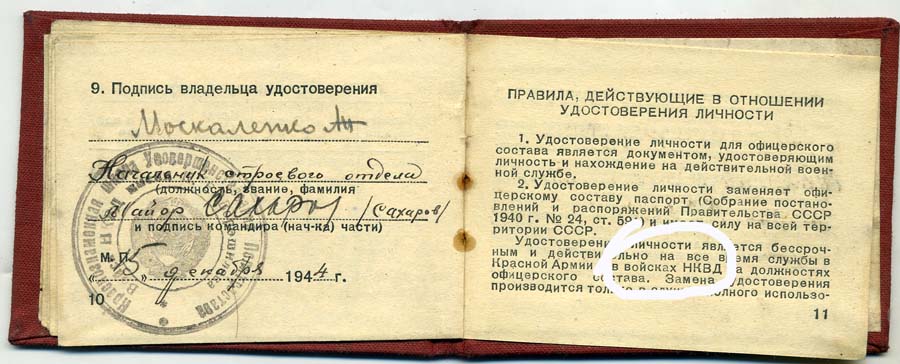 9. Подпись владельца удостоверения
Москаленко
Начальник строевого отдела
(должность, звание, фамилия
Майор Сахаров /Сахаров/
и подпись командира (нач-ка) части)
М. П.
"5" декабря 1944 г.
10
ПРАВИЛА, ДЕЙСТВУЮЩИЕ В ОТНОШЕНИИ
УДОСТОВЕРЕНИЯ ЛИЧНОСТИ
1. Удостоверение личности для офицерского
состава является документом, удостоверяющим
личность и нахождение на действительной воен-
ной службе.
2. Удостоверение личности заменяет офи-
церскому составу паспорт (Собрание постано-
влений и распоряжений Правительства СССР
1940 г. № 24, ст. 591) и имеет силу на всей тер-
ритории СССР.
Удостоверение личности является бессроч-
ным и действительно на все время службы в
Красной Армии в войсках НКВД на должностях
офицерского состава. Замена удостоверения
производится только в полного использо-
11